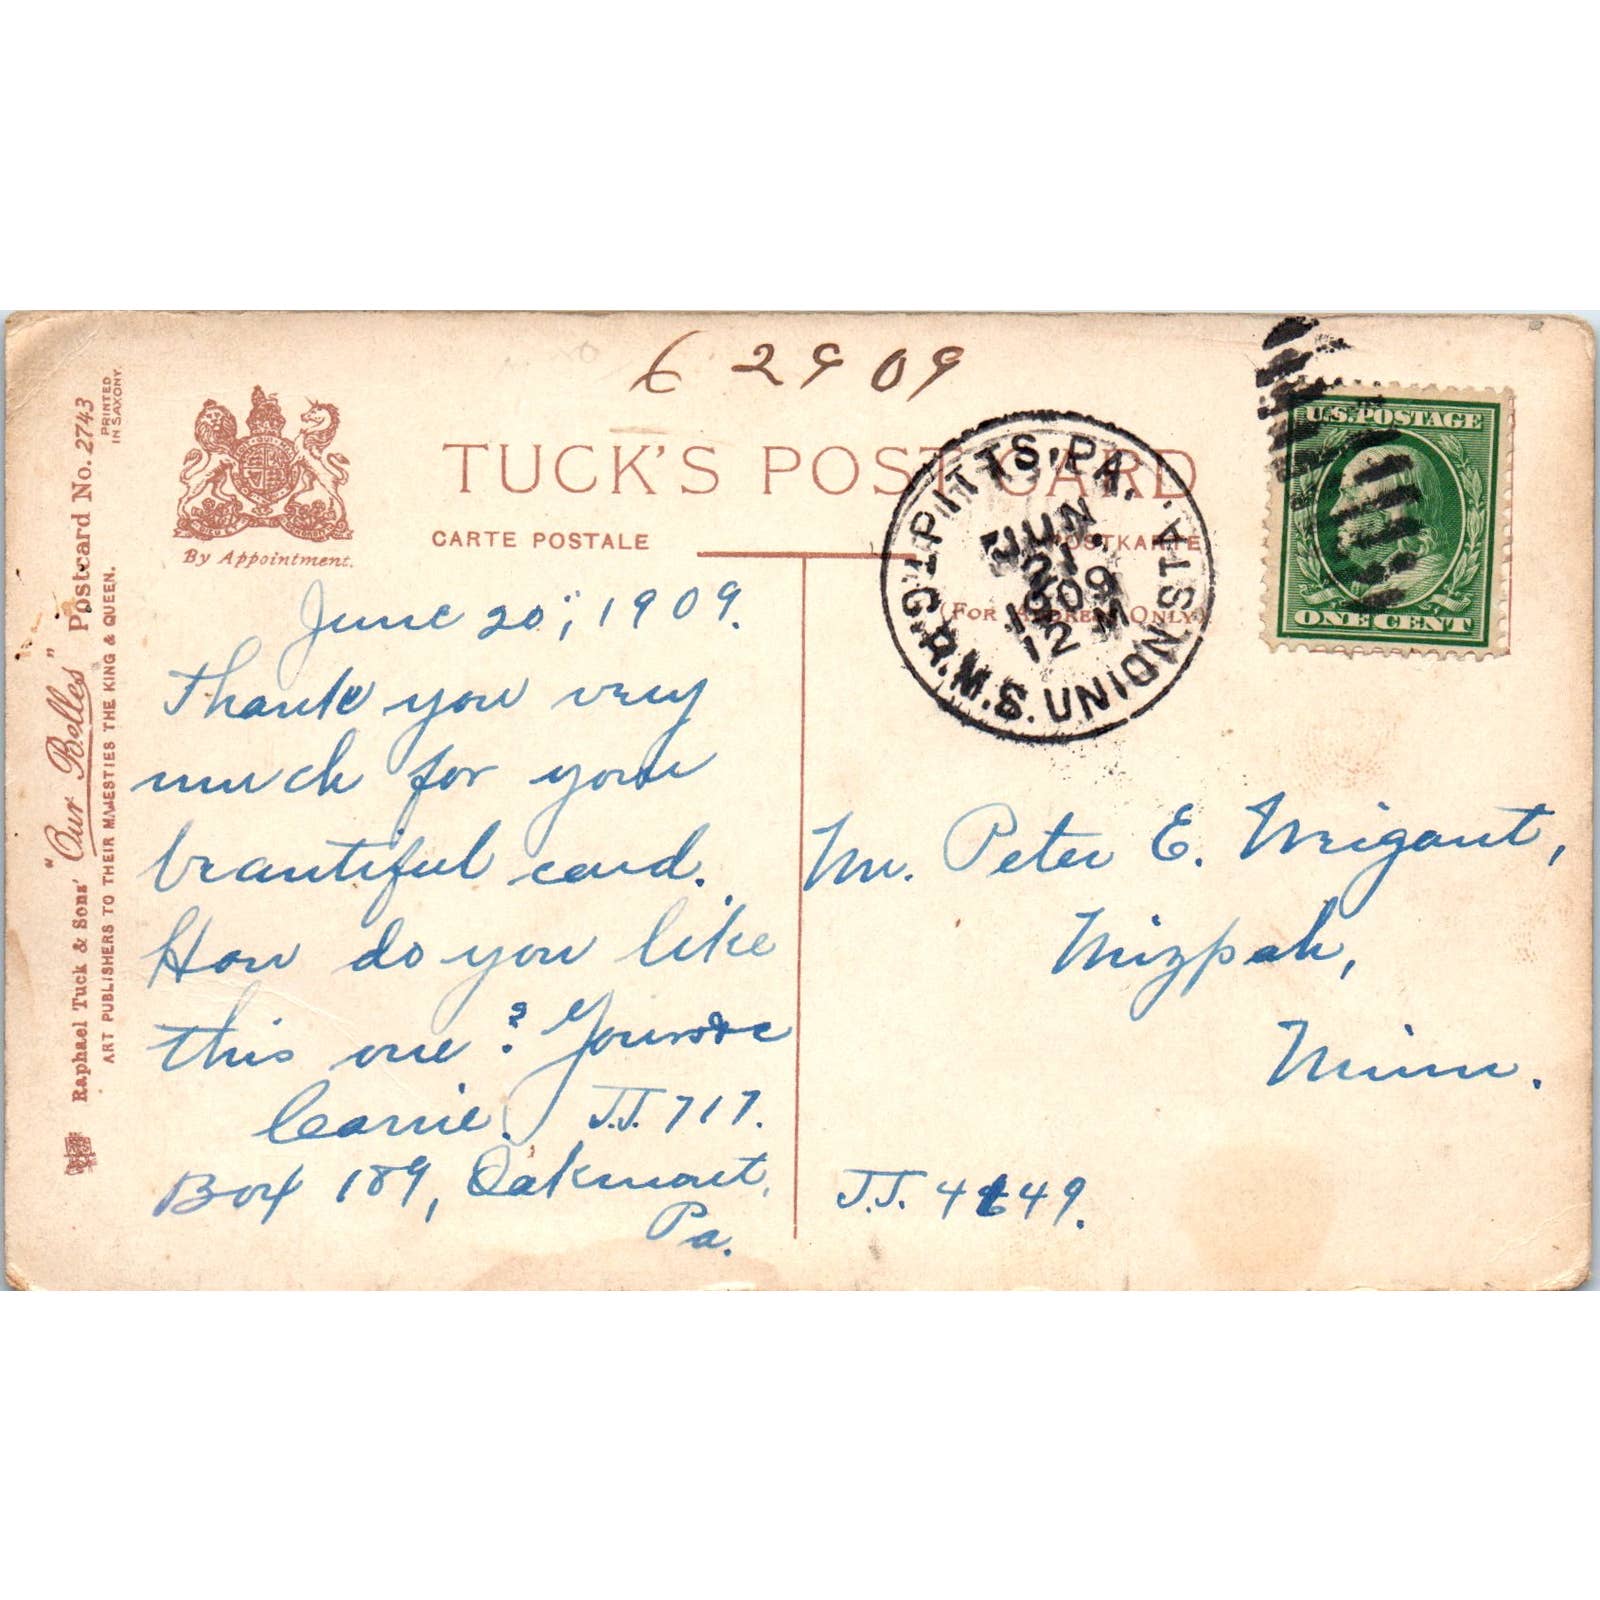 6 29 09
TUCK'S POST CARD
CARTE POSTALE
POSTKARTE
(FOR ADDRESS ONLY)
By Appointment.
Raphael Tuck & Sons' "Our Belles" Postcard No. 2743
ART PUBLISHERS TO THEIR MAJESTIES THE KING & QUEEN.
PRINTED
IN SAXONY
PITTS, PA.
R.M.S. UNION STA.
JUN
21
1909
12 M
U.S. POSTAGE
ONE CENT
June 20, 1909.
Thank you very
much for your
beautiful card.
How do you like
this one? Yours etc
Carrie. J.J. 717.
Box 189, Oakmont,
Pa.
Mr. Peter E. Wrigant,
Mizpah,
Minn.
J.J. 4649.